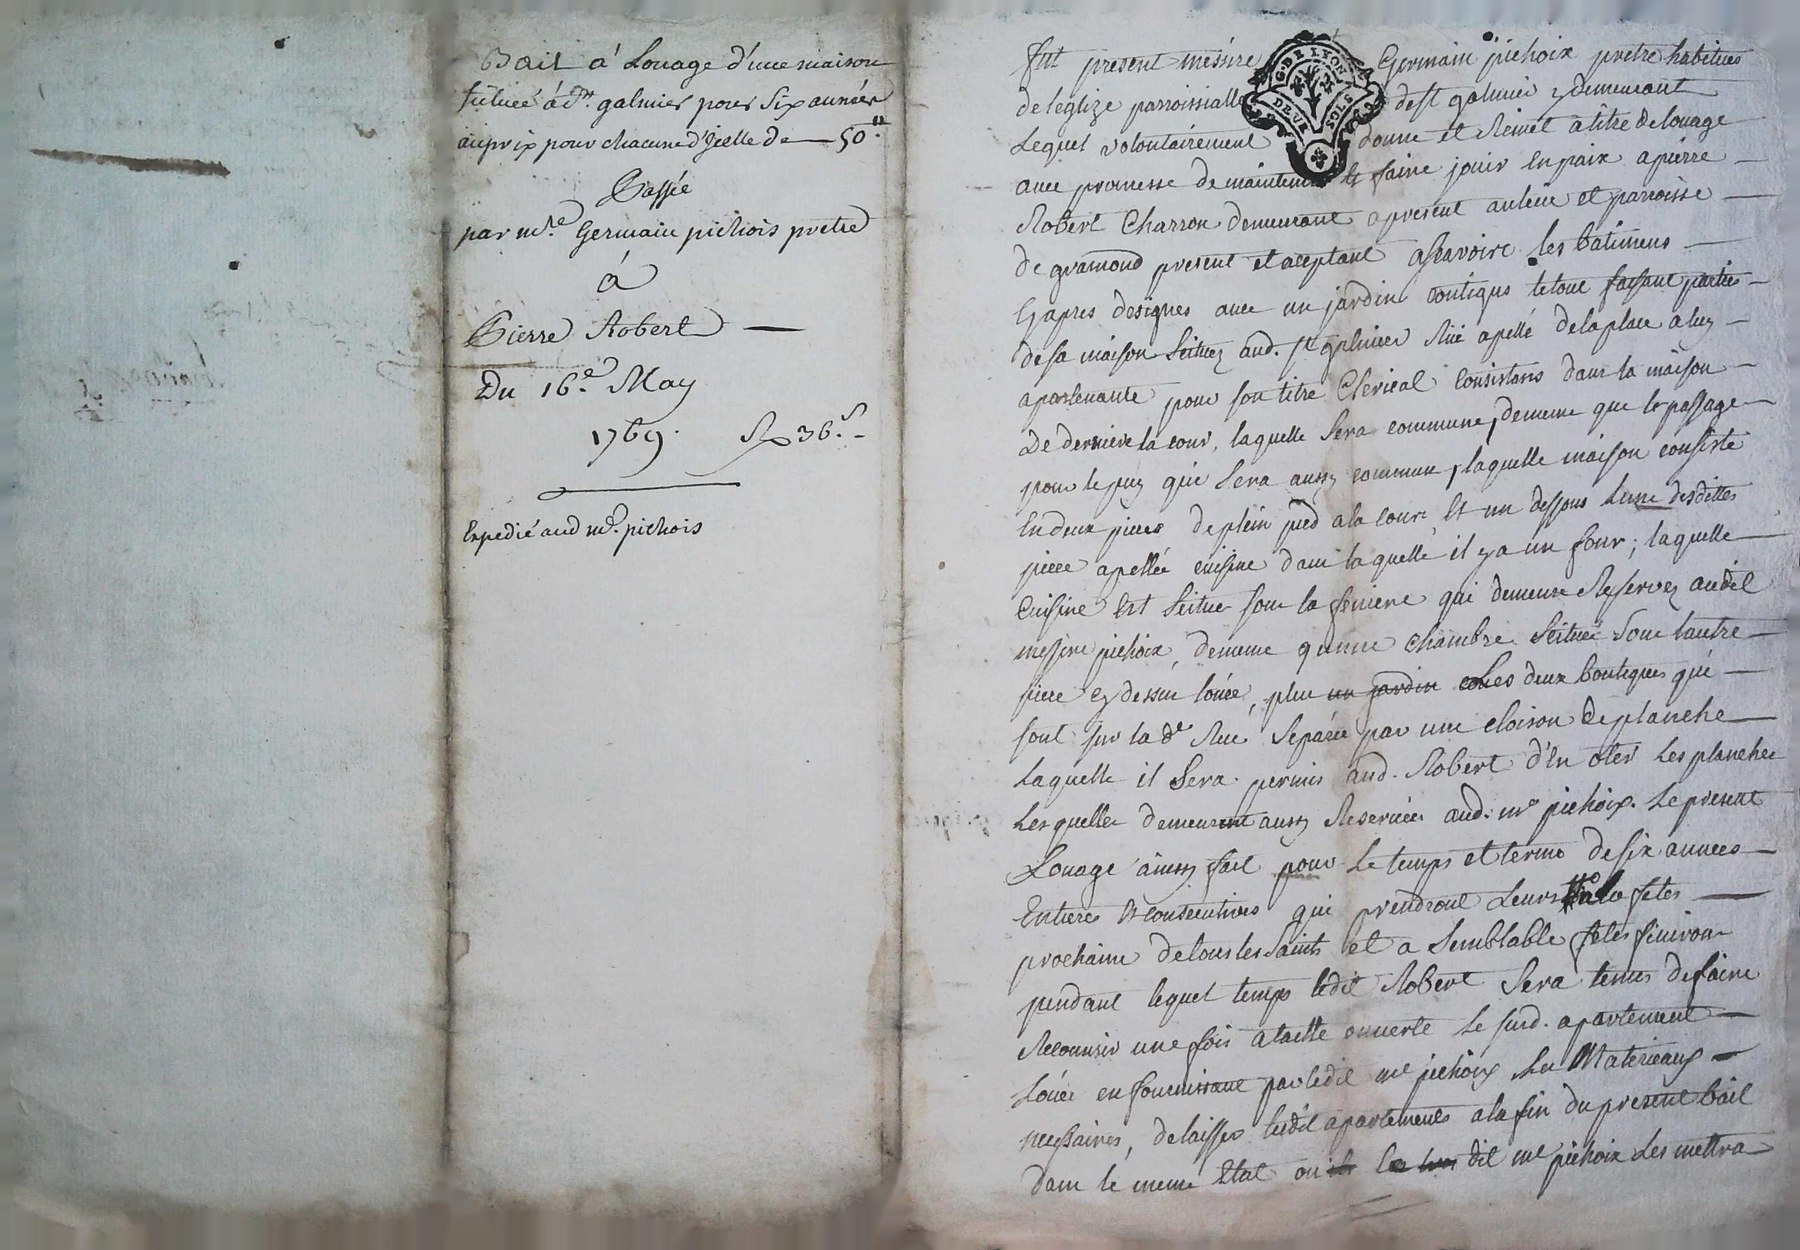 Bail á Louage d'une maison
situeé á St. galmier pour Six années
au prix pour chacune d'Jcelle de — 50 ₶
Passée
par mre. Germain pichois pretre
á
Pierre Robert —
Du 16e. May
1769. 36s. -
Expedié aud mr. pichois
G. D. LYON
DEUX SOLS
Fut present messire Germain pichoix pretre habitues
de léglize parroissialle de st galmier y demeurant
Lequel volontairement donne et Remet a titre de louage
avec promesse de maintenir et faire jouir En paix a pierre —
Robert Charron demeurant apresent au lieu et parroisse —
de gramond present et aceptant asçavoir les batimens —
Cy apres designes avec un jardin contigus le tout faisant parties —
de sa maison scituez aud. st galmier Rüe apellé de la place a luy —
apartenante pour son titre Clerical Consistans dans la maison —
de derriere la cour, laquelle sera commune, dememe que le passage —
pour le puy qui sera aussy commun, laquelle maison consiste
En deux pieces de plein pied a la cour Et un dessous Lune desdittes
piece apellée cuisine dans laquelle il y a un four; laquelle —
Cuisine Est scituée sous la feniere qui demeure Reservez audit
messire pichoix, demême qu'une chambre scituée sous lautre —
piece cy dessus loüée, plus un jardin Les deux boutiques qui —
sont sur la de Rüe séparée par une cloison de planche —
Laquelle il sera permis aud. Robert d'En oter Les planches
Lesquelles demeurent aussy Reservées aud. mre pichoix. Le present
Louage ainsy fait pour le temps et terme de six annees —
Entieres Et consecutives qui prendront Leurs a la fetes —
prochaine de tous les saints et a semblable fetes finiron
pendant lequel temps ledit Robert sera tenus de faire
Recouvrir une fois a taille ouverte Le surd. apartement —
Loüés en fournissant par ledit mre pichoix les Materieaux —
necessaires, de laisser lesdit apartements a la fin du present bail
dans le meme Etat ou dit mre pichoix Les mettra